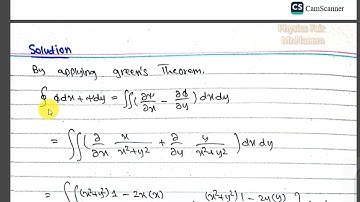 CS CamScanner
Physics Fair
Mr.Naseem
Solution
By applying green's Theorem.
∮ ϕdx + ψdy = ∬(∂ψ/∂x - ∂ϕ/∂y) dxdy
= ∬(∂/∂x x/x²+y² + ∂/∂y y/x²+y²) dx dy
= ∬(x²+y²)1 - 2x(x) (x²+y²)1 - 2y(y)